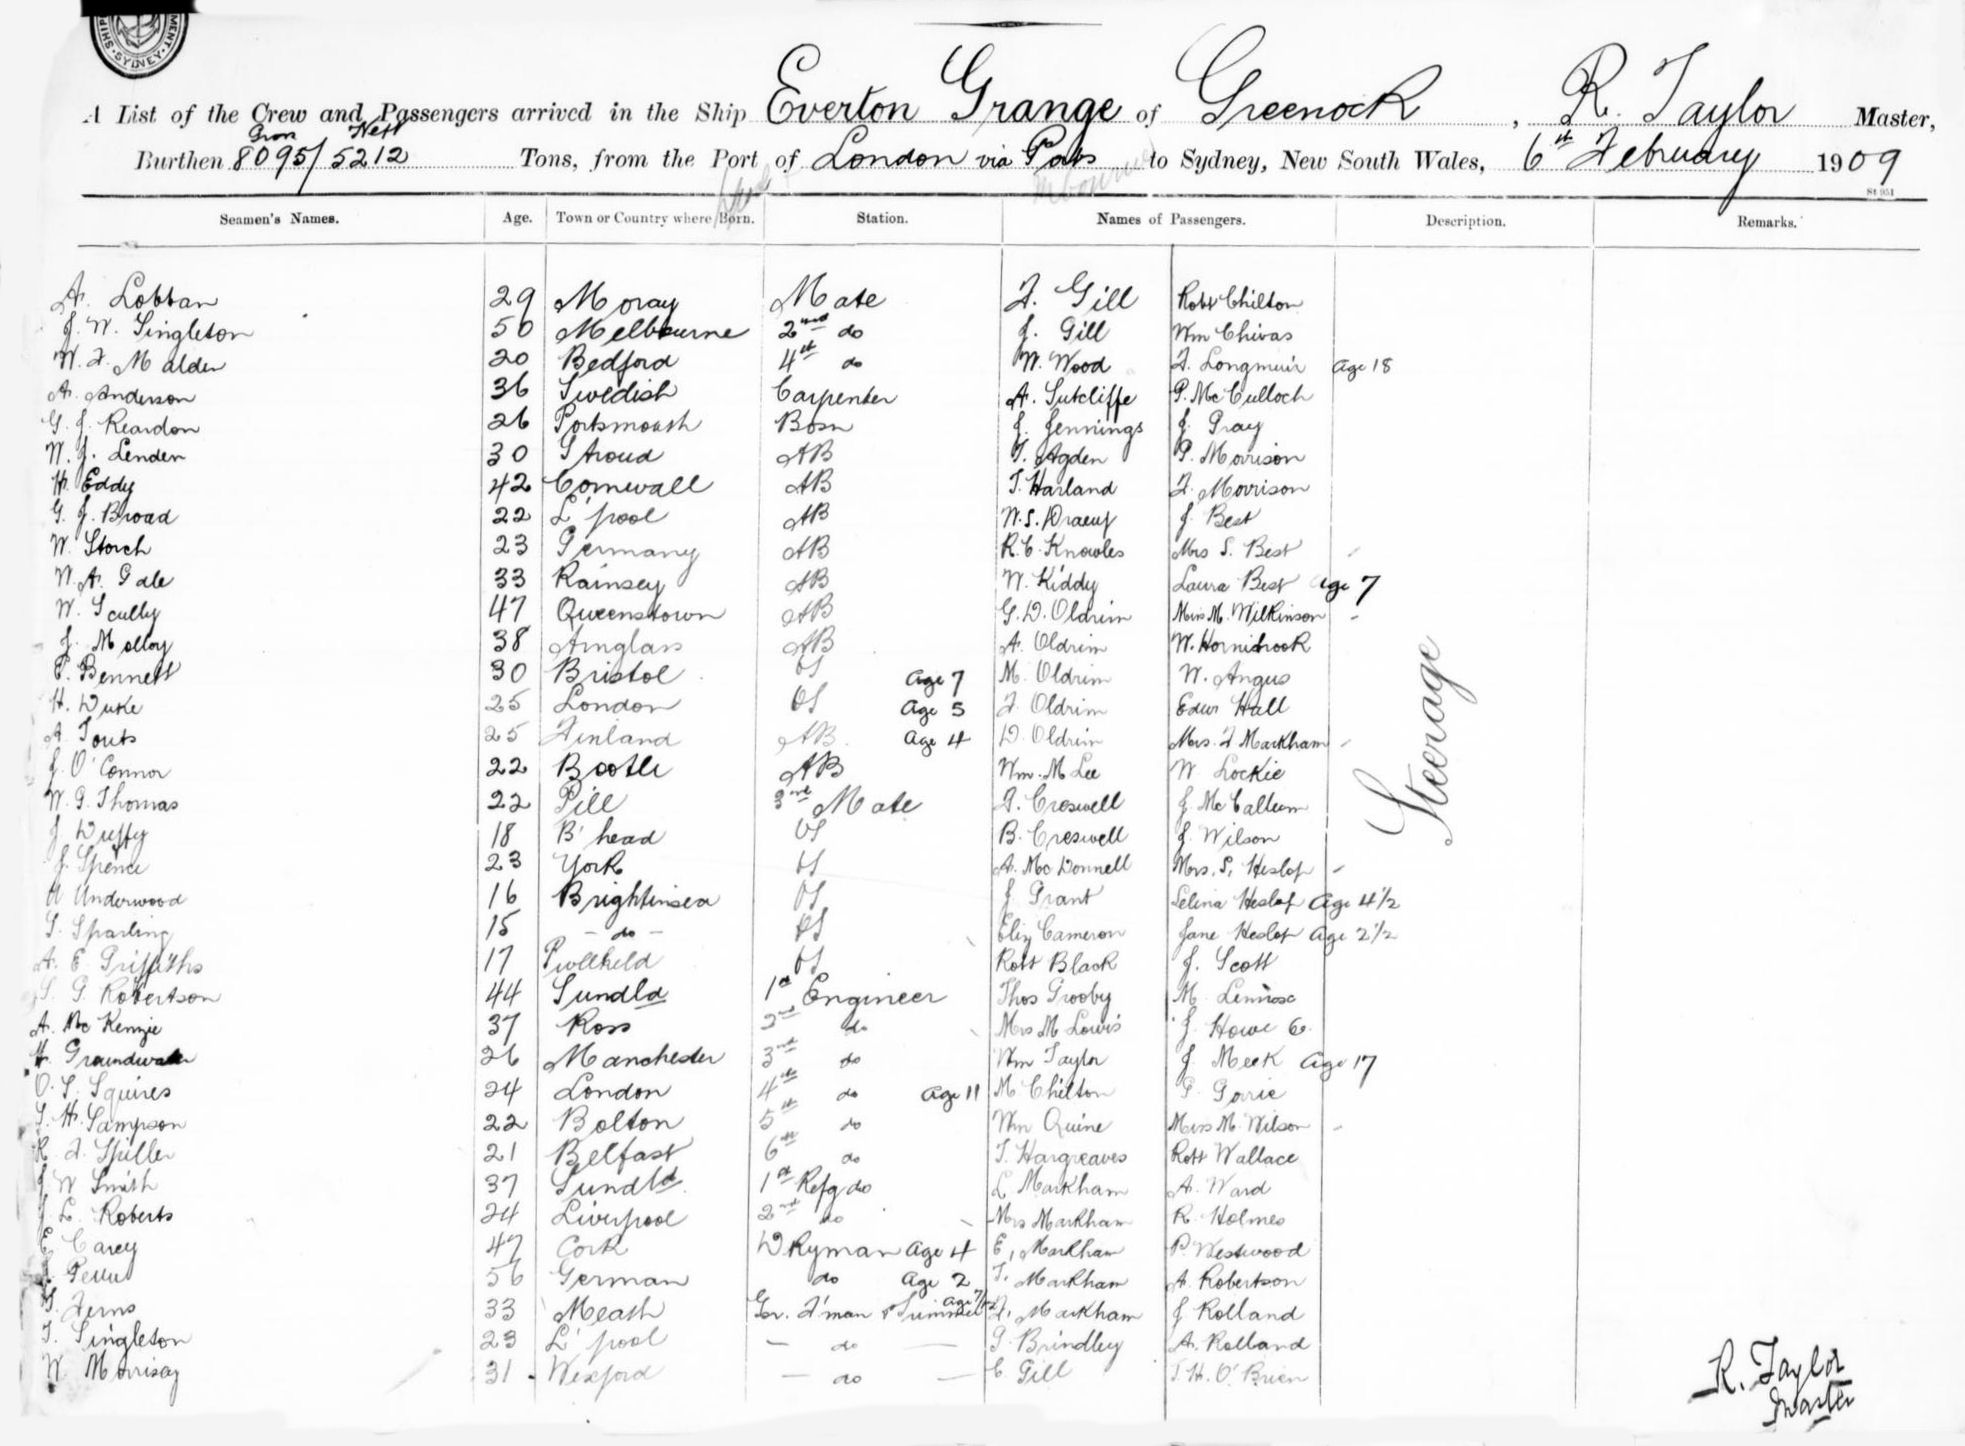 SHIP MENT. SYDNEY
A List of the Crew and Passengers arrived in the Ship Everton Grange of Greenock, R. Taylor Master,
Gross Nett
Burthen 8095/5212 Tons, from the Port of London via Pots to Sydney, New South Wales, 6th February 1909
St 951
Seamen's Names. Age. Town or Country where Born. Station. Names of Passengers. Description. Remarks.
A. Lobban 29 Moray Mate F. Gill Robt Chilton
J. W. Singleton 50 Melbourne 2nd do J. Gill Wm Chivas
W. F. Malden 20 Bedford 4th do W. Wood F. Longmuir Age 18
A. Anderson 36 Swedish Carpenter A. Sutcliffe P. McCulloch
G. J. Reardon 26 Portsmouth Bosn J. Jennings J. Gray
W. J. Lenden 30 Stroud AB T. Agden P. Morrison
H. Eddy 42 Cornwall AB T. Harland F. Morrison
G. J. Broad 22 L'pool AB W. S. J. Best
W. Storch 23 Germany AB R. C. Knowles Mrs S. Best
W. A. Gale 33 Ramsey AB W. Kiddy Laura Best Age 7
W. Scully 47 Queenstown AB G. D. Oldrim Miss M. Wilkinson
J. Molloy 38 AB A. Oldrim W. Hornibrook
P. Bennett 30 Bristol OS Age 7 M. Oldrim W. Angus
H. Duke 25 London OS Age 5 F. Oldrim Edwr Hall
A. Touts 25 Finland AB Age 4 D. Oldrim Mrs. F Markham
J. O'Connor 22 Bootle AB Wm. M Lee W Lockie
W. G. Thomas 22 Pill 3rd Mate F. Creswell J. McCallum
J Duffy 18 B'head OS B. Creswell J. Wilson
J. Spence 23 York OS A. McDonnell Mrs. S. Heslop
A Underwood 16 Brightinsea OS J Grant Selina Heslop Age 4 1/2
S. Sparling 15 - do - OS Eliz Cameron Jane Heslop Age 2 1/2
A. E. Griffiths 17 Pwllheld OS Robt Black J. Scott
S. G. Robertson 44 Sundld 1st Engineer Thos Grooby M. Lennox
A. McKenzie 37 Ross 2nd do Mrs M Lowis J. Howe
H. Groundwater 26 Manchester 3rd do Wm Taylor J. Meek Age 17
O. S. Squires 24 London 4th do Age 11 M Chilton P. Gorrie
S. H. Sampson 22 Bolton 5th do Wm Quine Miss M. Wilson
R. F. Spiller 21 Belfast 6th do T. Hargreaves Robt Wallace
J W Smith 37 Sundld. 1st Refg do L. Markham A. Ward
J. L. Roberts 24 Liverpool 2nd do Mrs Markham R. Holmes
E Carey 47 Cork DKyman Age 4 E, Markham P Westwood
56 German do Age 2 T, Markham A. Robertson
T. Ferns 33 Meath Gr. F'man & Trimmer Age 7/12 F, Markham J Rolland
T. Singleton 23 L'pool - do - G. Brindley A. Rolland
W Morrisay 31 Wexford - do - C Gill T. H. O'Brien
Steerage
R. Taylor
Master